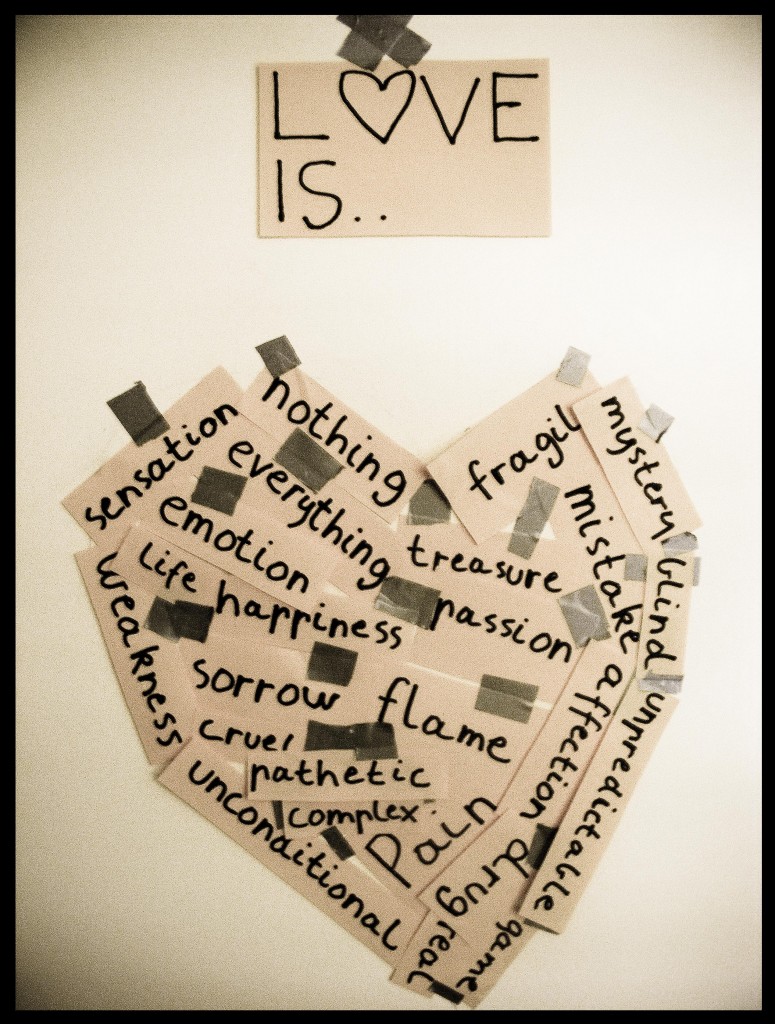 LOVE
IS..
nothing
sensation
everything
fragil
mystery
emotion
treasure
mistake
blind
life
happiness
passion
weakness
sorrow
flame
affection
unpredictable
cruel
pathetic
complex
pain
unconditional
drug
real
game